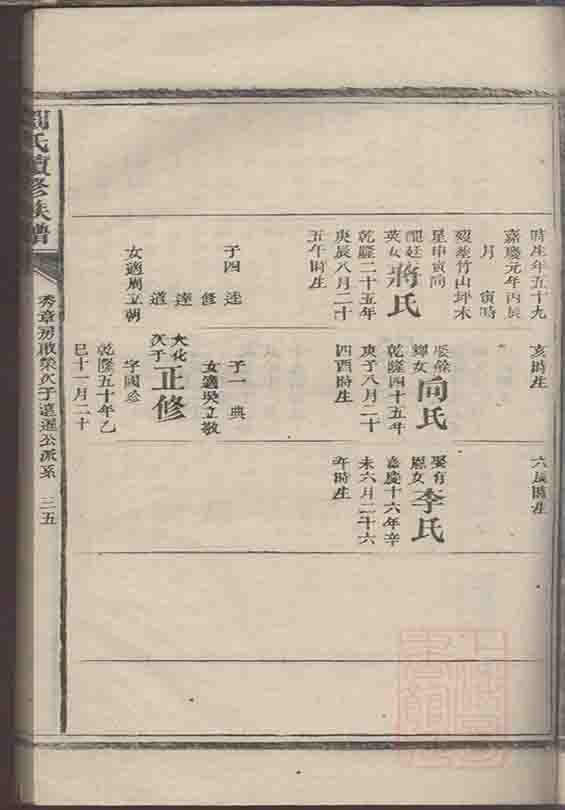 時生年五十九
嘉慶元年丙辰
月　寅時
竹山坪木
星申寅向
蔣氏
英女
乾隆二十五年
庚辰八月二十
五午時生
子四　達
修
達
道
女適周立朝
亥時生
向氏
輝女
乾隆四十五年
庚子八月二十
四酉時生
子一　典
女適吳立敬
大化
次子
正修
字國
乾隆五十年乙
巳十一月二十
六辰時生
娶有
恩女
李氏
嘉慶十六年辛
未六月二十六
午時生
氏續修族譜
秀章房啟榮次子遠遲公派系　三五